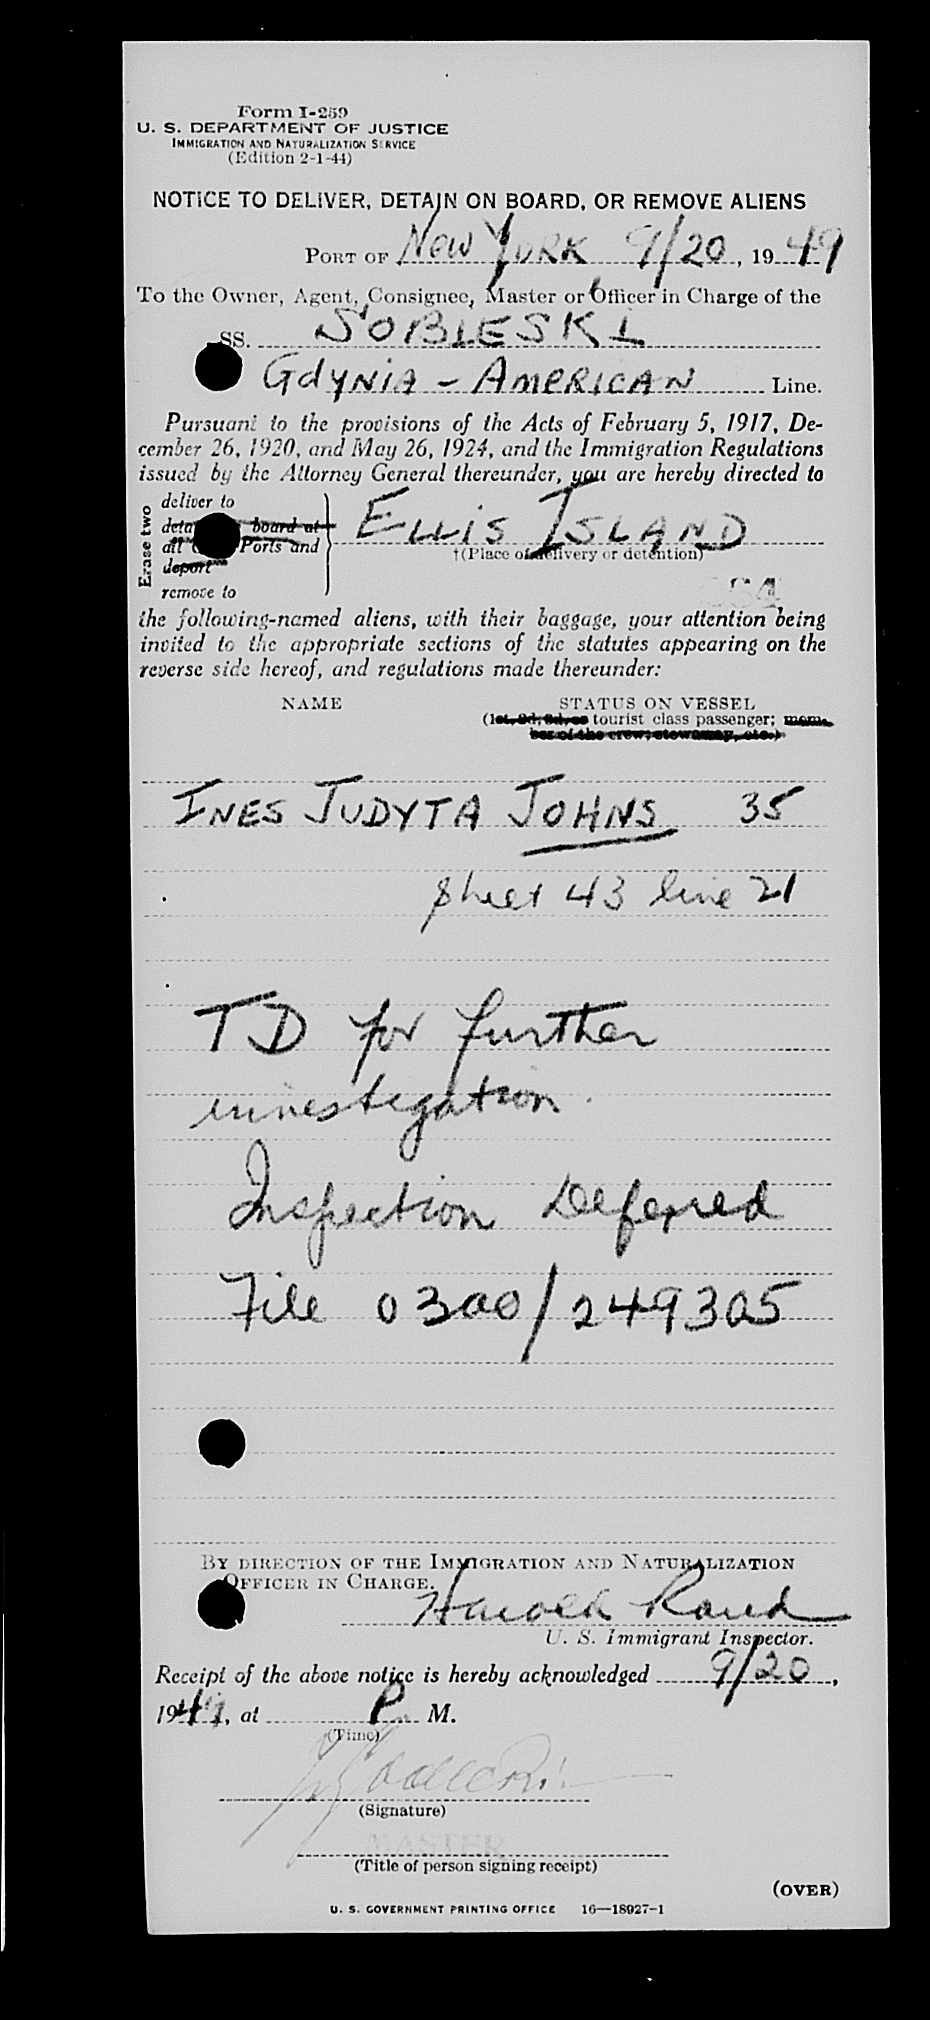 Form I-259
U. S. DEPARTMENT OF JUSTICE
IMMIGRATION AND NATURALIZATION SERVICE
(Edition 2-1-44)
NOTICE TO DELIVER, DETAIN ON BOARD, OR REMOVE ALIENS
PORT OF New York 9/20, 1949
To the Owner, Agent, Consignee, Master or Officer in Charge of the
SS. SOBIESKI
Gdynia - American Line.
Pursuant to the provisions of the Acts of February 5, 1917, De-
cember 26, 1920, and May 26, 1924, and the Immigration Regulations
issued by the Attorney General thereunder, you are hereby directed to
Erase two
deliver to
board at
all Ports and
deport
remove to
ELLIS ISLAND
†(Place of delivery or detention)
the following-named aliens, with their baggage, your attention being
invited to the appropriate sections of the statutes appearing on the
reverse side hereof, and regulations made thereunder:
NAME STATUS ON VESSEL
(1st, 2d, 3d, or tourist class passenger; mem-
ber of the crew; stowaway, etc.)
INES JUDYTA JOHNS 35
sheet 43 line 21
TD for further
investigation.
Inspection Deferred
File 0300/249305
BY DIRECTION OF THE IMMIGRATION AND NATURALIZATION
OFFICER IN CHARGE.
Harold Rand
U. S. Immigrant Inspector.
Receipt of the above notice is hereby acknowledged 9/20,
1949, at P M.
(Time)
(Signature)
MASTER
(Title of person signing receipt)
(OVER)
U. S. GOVERNMENT PRINTING OFFICE 16—18927-1